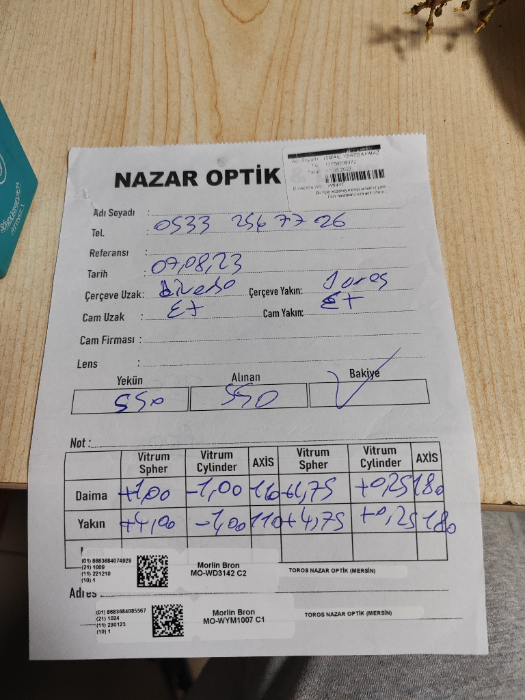 NAZAR OPTİK
Adı Seyadı :
Tel. : 0533 256 77 26
Referansı :
Tarih : 07,08,23
Çerçeve Uzak: Çerçeve Yakın:
Cam Uzak : Cam Yakın:
Cam Firması :
Lens :
Yekün Alınan Bakiye
550 550
Not :
Vitrum Spher Vitrum Cylinder AXİS Vitrum Spher Vitrum Cylinder AXİS
Daima +1,00 -1,00 110 +1,75 +0,25 180
Yakın +4,00 -1,00 110 +4,75 +0,25 180
(21) 1009
(11) 221210
(10) 1
Morlin Bron
MO-WD3142 C2
TOROS NAZAR OPTİK (MERSİN)
Adres
(21) 1024
(11) 230123
(10) 1
Morlin Bron
MO-WYM1007 C1
TOROS NAZAR OPTİK (MERSİN)